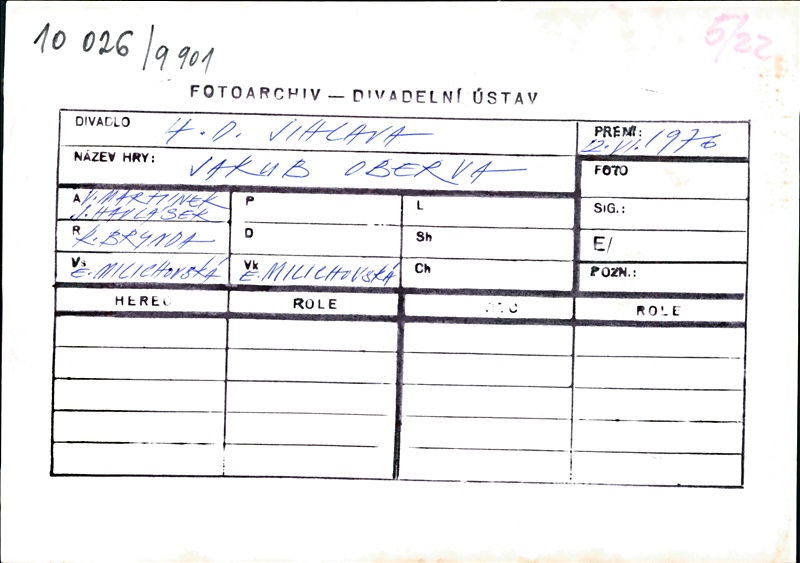 10 026/9901
5/22
FOTOARCHIV — DIVADELNÍ ÚSTAV
DIVADLO H.D. JIHLAVA
PREMI: 12.VI.1976
NÁZEV HRY: JAKUB OBERVA
FOTO
A V. MARTINEK
J. HAPLASER
P
L
SIG.:
R R. BRYNDA
D
Sh
E/
Vs E. MILICHOVSKÁ
Vk E. MILICHOVSKÁ
Ch
POZN.:
HEREC ROLE ROLE